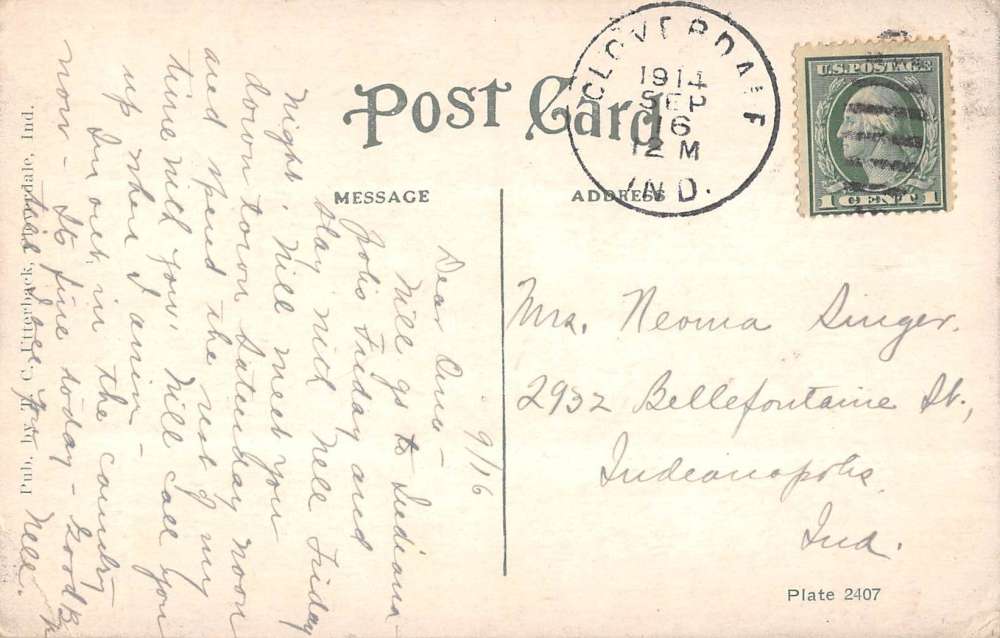 Post Card
CLOVERDALE
1914
SEP
16
12 M
IND.
U.S. POSTAGE
1 CENT 1
MESSAGE
ADDRESS
9/16
Dear Onie -
Will go to Indiana-
polis Friday and
stay with Nell Friday
night. Will meet you
down town Saturday noon
and spend the rest of my
time with you. Will call you
up when I arrive -
Am out in the country
now - Its fine today - Good B
till I see you Nell.
Mrs. Neoma Singer.
2932 Bellefontaine St.,
Indianapolis
Ind.
Plate 2407
Pub. by T. C. Utterback, Cloverdale, Ind.